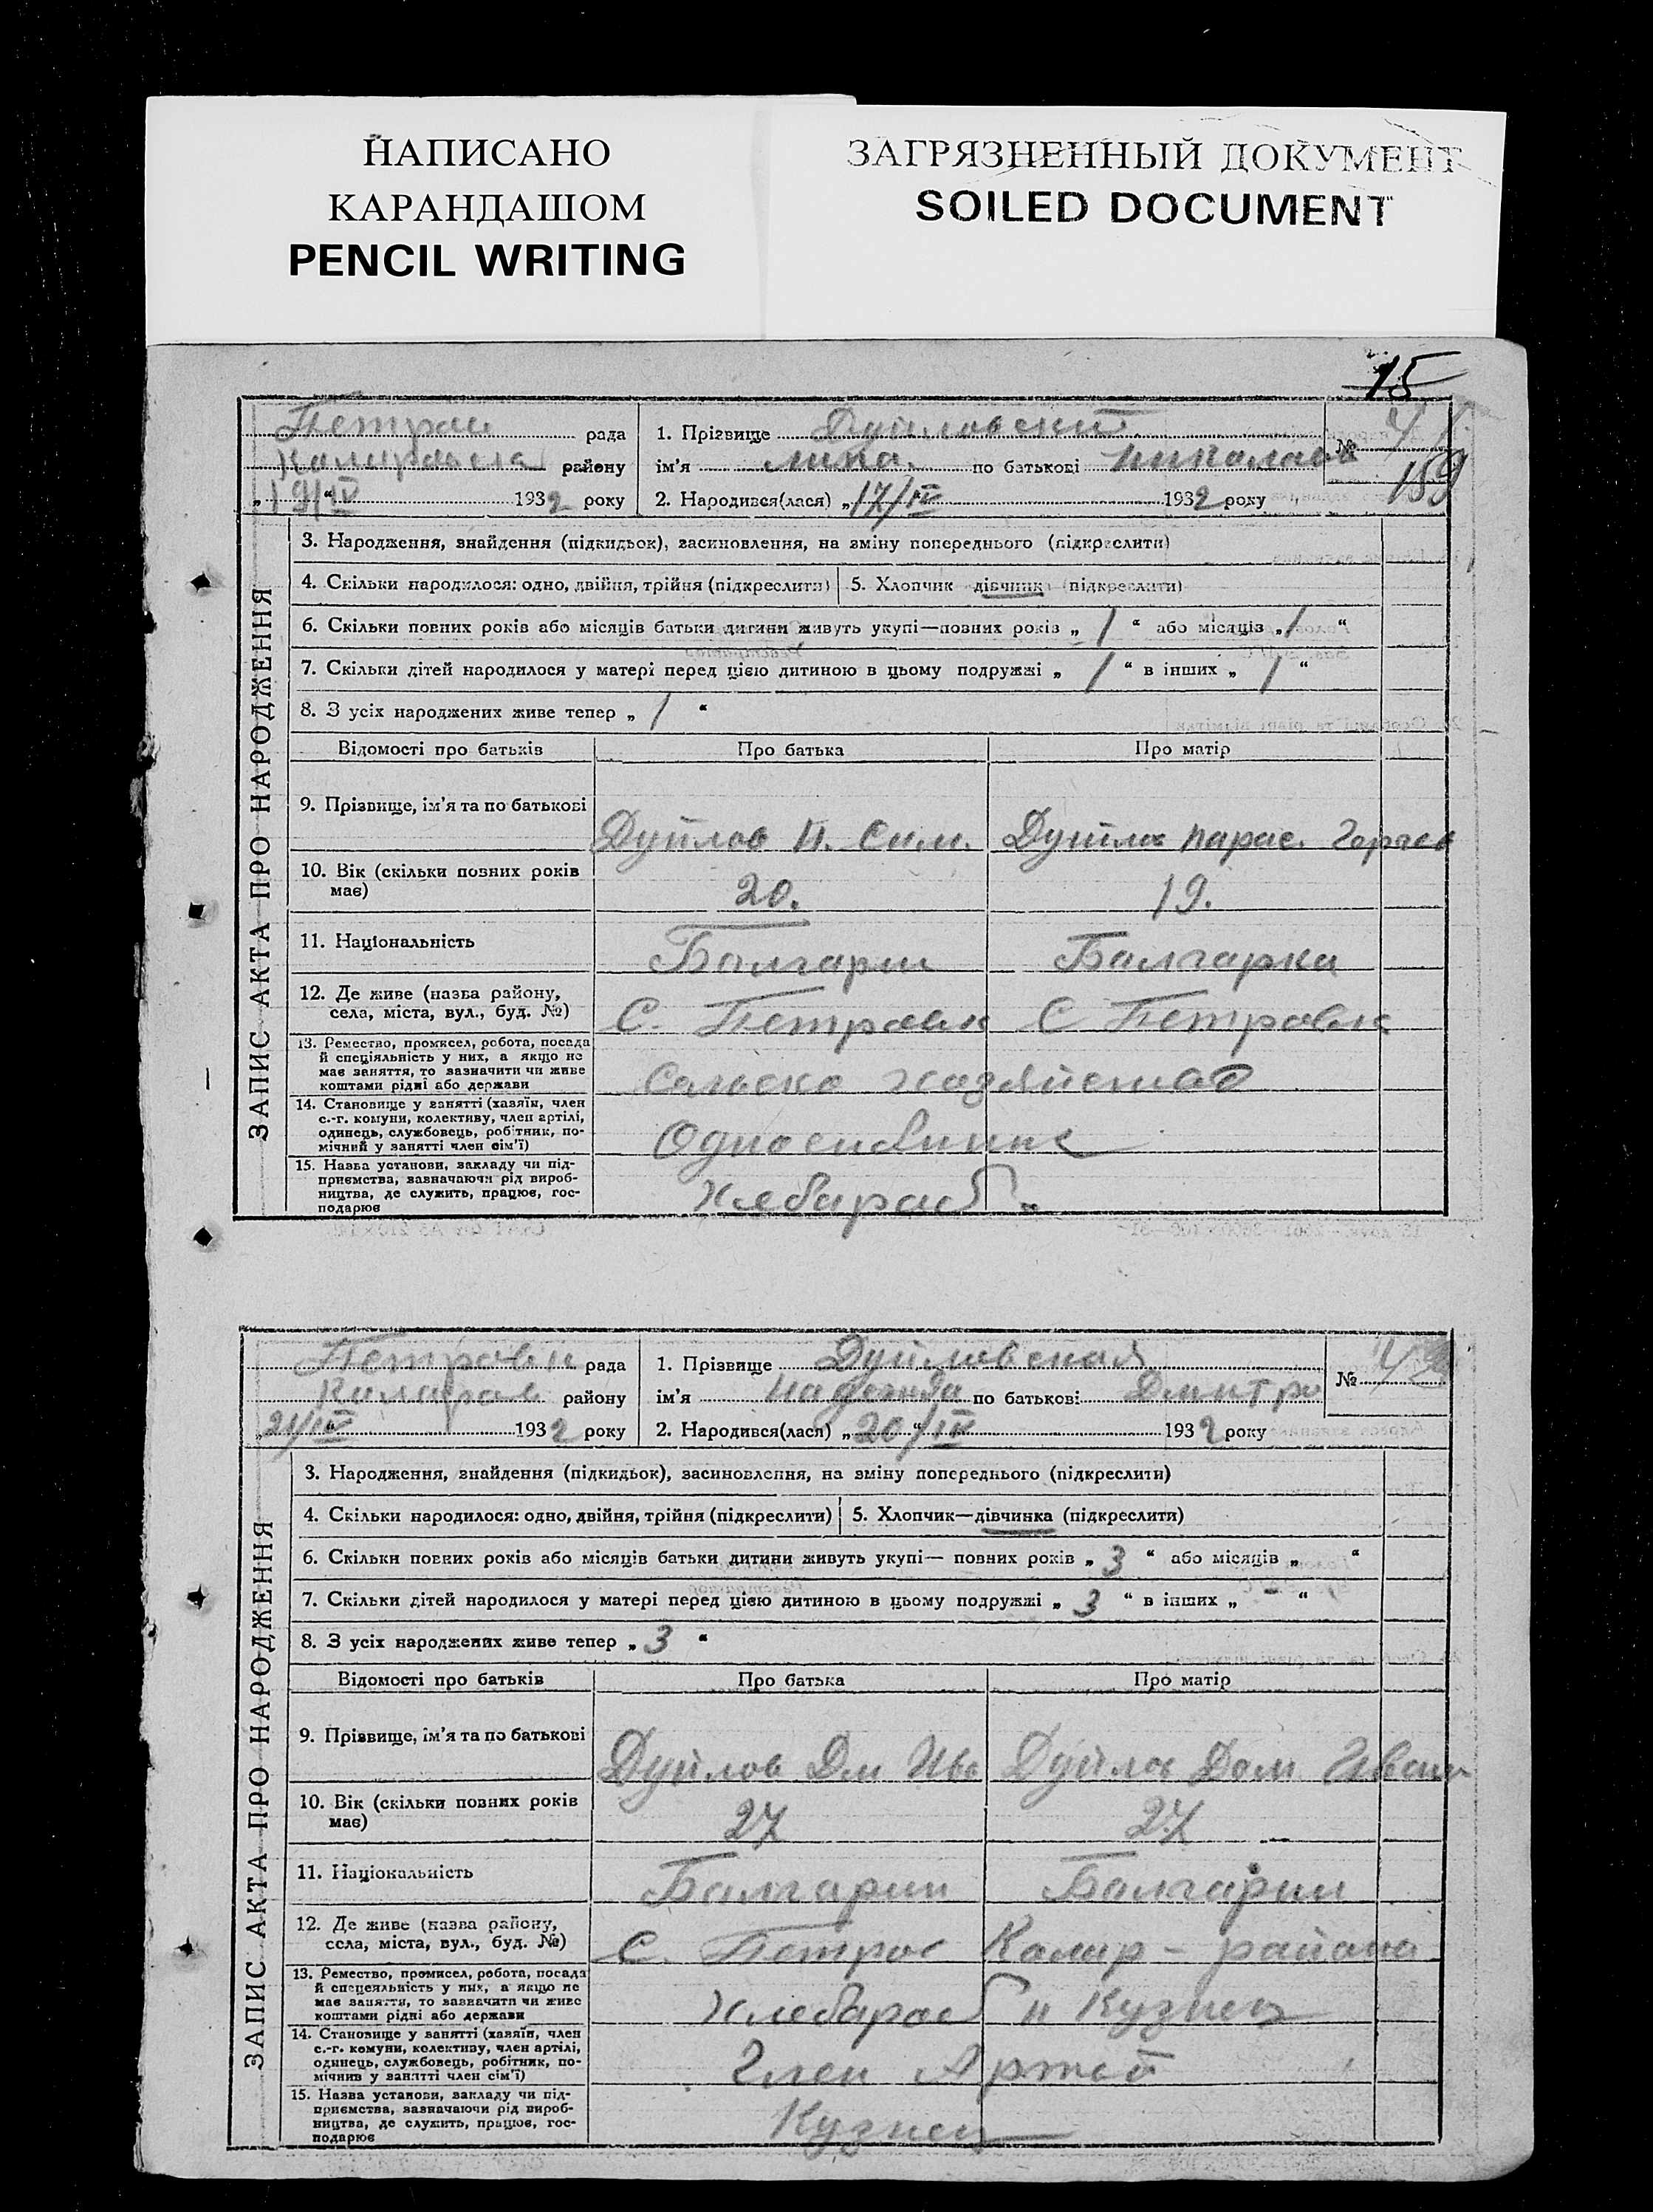 НАПИСАНО
КАРАНДАШОМ
PENCIL WRITING
ЗАГРЯЗНЕННЫЙ ДОКУМЕНТ
SOILED DOCUMENT
15
ЗАПИС АКТА ПРО НАРОДЖЕННЯ
рада 1. Прізвище Дуйловский №
району ім'я по батькові Николаев 159
„19/IV 1932 року 2. Народився(лася) „17/IV 1932 року
3. Народження, знайдення (підкидьок), засиновлення, на зміну попереднього (підкреслити)
4. Скільки народилося: одно, двійня, трійня (підкреслити) 5. Хлопчик дівчинка (підкреслити)
6. Скільки повних років або місяців батьки дитини живуть укупі—повних років „ / “ або місяців „ / “
7. Скільки дітей народилося у матері перед цією дитиною в цьому подружжі „ / “ в інших „ / “
8. З усіх народжених живе тепер „ / “
Відомості про батьків Про батька Про матір
9. Прізвище, ім'я та по батькові
Дуйлов Н. Сим. Дуйлов Парас.
10. Вік (скільки повних років
має) 20. 19.
11. Національність Балгарин Балгарка
12. Де живе (назва району,
села, міста, вул., буд. №) С. Петровка С Петровка
13. Ремество, промисел, робота, посада
й спеціяльність у них, а якщо не
має заняття, то зазначити чи живе
коштами рідні або держави
14. Становище у занятті (хазяїн, член
с.-г. комуни, колективу, член артілі,
одинець, службовець, робітник, по-
мічний у занятті член сім'ї)
15. Назва установи, закладу чи під-
приємства, зазначаючи рід вироб-
ництва, де служить, працює, гос-
подарює Хлебароб
ЗАПИС АКТА ПРО НАРОДЖЕННЯ
Петровки рада 1. Прізвище Дуйловская №
району ім'я Надежда по батькові Дмитро
„21/IV 1932 року 2. Народився(лася) „20/IV 1932 року
3. Народження, знайдення (підкидьок), засиновлення, на зміну попереднього (підкреслити)
4. Скільки народилося: одно, двійня, трійня (підкреслити) 5. Хлопчик—дівчинка (підкреслити)
6. Скільки повних років або місяців батьки дитини живуть укупі— повних років „ 3 “ або місяців „ “
7. Скільки дітей народилося у матері перед цією дитиною в цьому подружжі „ 3 “ в інших „ – “
8. З усіх народжених живе тепер „ 3 “
Відомості про батьків Про батька Про матір
9. Прізвище, ім'я та по батькові
Дуйлов Дм Ива Дуйлов Дом Иван
10. Вік (скільки повних років
має) 27 27
11. Національність Балгарин Балгарин
12. Де живе (назва району,
села, міста, вул., буд. №) С. Петров Колар – района
13. Ремество, промисел, робота, посада
й спецеяльність у них, а якщо не
має заняття, то зазначити чи живе
коштами рідні або держави Хлебароб и Кузнец
14. Становище у занятті (хазяїн, член
с.-г. комуни, колективу, член артілі,
одинець, службовець, робітник, по-
мічнив у занятті член сім'ї) Член Артей
15. Назва установи, закладу чи під-
приємства, зазначаючи рід вироб-
ництва, де служить, працює, гос-
подарює Кузнец